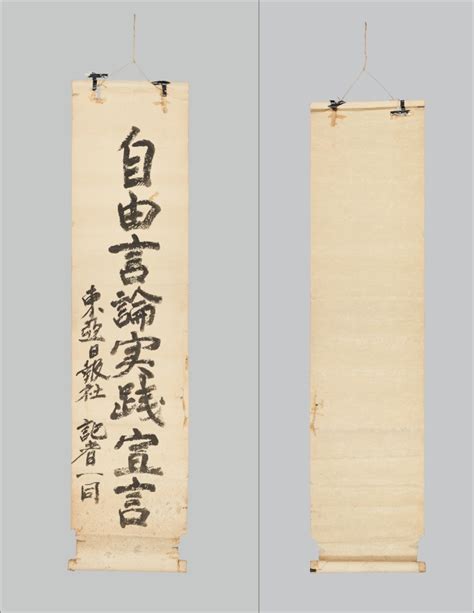 自由言論実践宣言
東亞日報社 記者一同